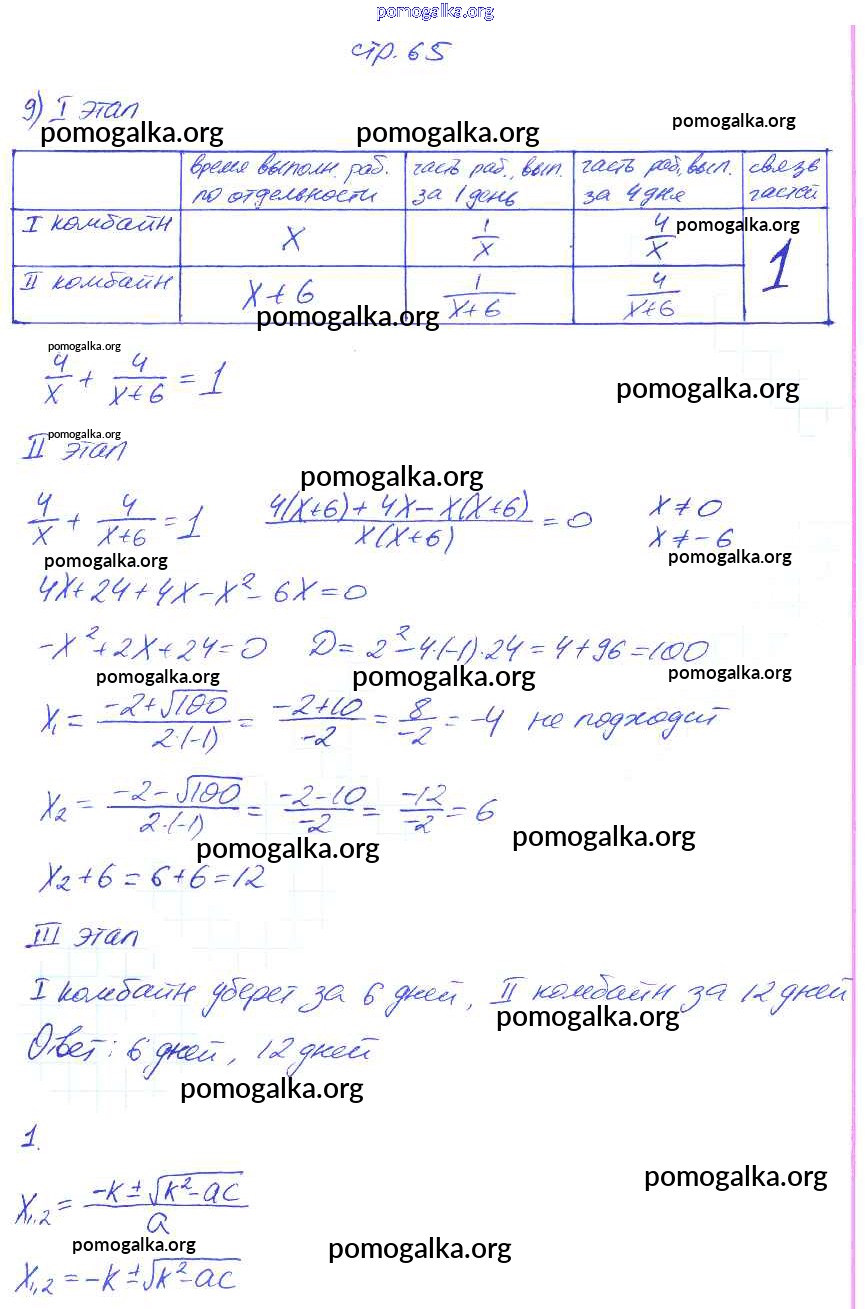 pomogalka.org
стр. 65
9) I этап
pomogalka.org pomogalka.org pomogalka.org
время выполн. раб. по отдельности
часть раб., вып. за 1 день
часть раб., вып. за 4 дня
связь частей
I комбайн X 1/X 4/X pomogalka.org
1
II комбайн X+6 1/(X+6) 4/(X+6)
pomogalka.org
pomogalka.org
4/X + 4/(X+6) = 1
pomogalka.org
pomogalka.org
II этап
pomogalka.org
4/X + 4/(X+6) = 1 (4(X+6)+4X-X(X+6))/(X(X+6)) = 0 X≠0
X≠-6
pomogalka.org pomogalka.org
4X+24+4X-X²-6X=0
-X²+2X+24=0 D=2²-4·(-1)·24=4+96=100
pomogalka.org pomogalka.org pomogalka.org
X₁ = (-2+√100)/(2·(-1)) = (-2+10)/(-2) = 8/(-2) = -4 не подходит
X₂ = (-2-√100)/(2·(-1)) = (-2-10)/(-2) = (-12)/(-2) = 6
pomogalka.org pomogalka.org
X₂+6=6+6=12
III этап
I комбайн уберет за 6 дней, II комбайн за 12 дней
pomogalka.org
Ответ: 6 дней, 12 дней
pomogalka.org
1.
pomogalka.org
X₁,₂ = (-k±√(k²-ac))/a
pomogalka.org pomogalka.org
X₁,₂ = -k±√(k²-ac)